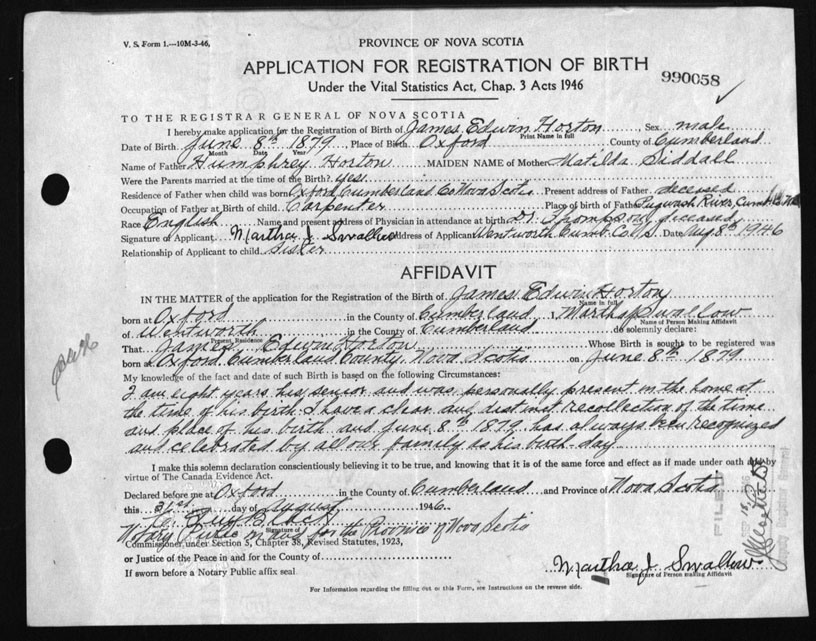 V. S. Form 1.—10M-3-46.
PROVINCE OF NOVA SCOTIA
APPLICATION FOR REGISTRATION OF BIRTH
Under the Vital Statistics Act, Chap. 3 Acts 1946
990058
TO THE REGISTRAR GENERAL OF NOVA SCOTIA
I hereby make application for the Registration of Birth of James Edwin Horton, Sex male
Print Name in full
Date of Birth June 8th 1879, Place of Birth Oxford County of Cumberland
Month Date Year
Name of Father Humphrey Horton MAIDEN NAME of Mother Matilda Siddall
Were the Parents married at the time of the Birth? yes
Residence of Father when child was born Oxford Cumberland Co Nova Scotia Present address of Father deceased
Occupation of Father at Birth of child Carpenter Place of birth of Father Pugwash River, Cumb. Co. N.S.
Race English Name and present address of Physician in attendance at birth Dr. Thompson, deceased
Signature of Applicant Martha J Swallow Address of Applicant Wentworth Cumb. Co. N.S. Date Aug 8th 1946
Relationship of Applicant to child Sister
AFFIDAVIT
IN THE MATTER of the application for the Registration of the Birth of James Edwin Horton
Name in full
born at Oxford in the County of Cumberland, I Martha Swallow
Name of Person Making Affidavit
of Wentworth in the County of Cumberland do solemnly declare:
Present Residence
That James Edwin Horton Whose Birth is sought to be registered was
born at Oxford Cumberland County Nova Scotia on June 8th 1879
My knowledge of the fact and date of such Birth is based on the following Circumstances:
I am eight years his senior and was personally present in the home at
the time of his birth. I have a clear and distinct recollection of the time
and place of his birth and June 8th 1879 has always been recognized
and celebrated by all our family as his birth-day
I make this solemn declaration conscientiously believing it to be true, and knowing that it is of the same force and effect as if made under oath and by
virtue of The Canada Evidence Act.
Declared before me at Oxford in the County of Cumberland and Province of Nova Scotia
this 31st day of August 1946.
Signature of
Notary Public in and for the Province of Nova Scotia
Commissioner under Section 5, Chapter 38, Revised Statutes, 1923,
or Justice of the Peace in and for the County of
If sworn before a Notary Public affix seal.
Martha J Swallow
Signature of Person making Affidavit
For Information regarding the filling out of this Form, see Instructions on the reverse side.
FILED
Deputy Registrar General